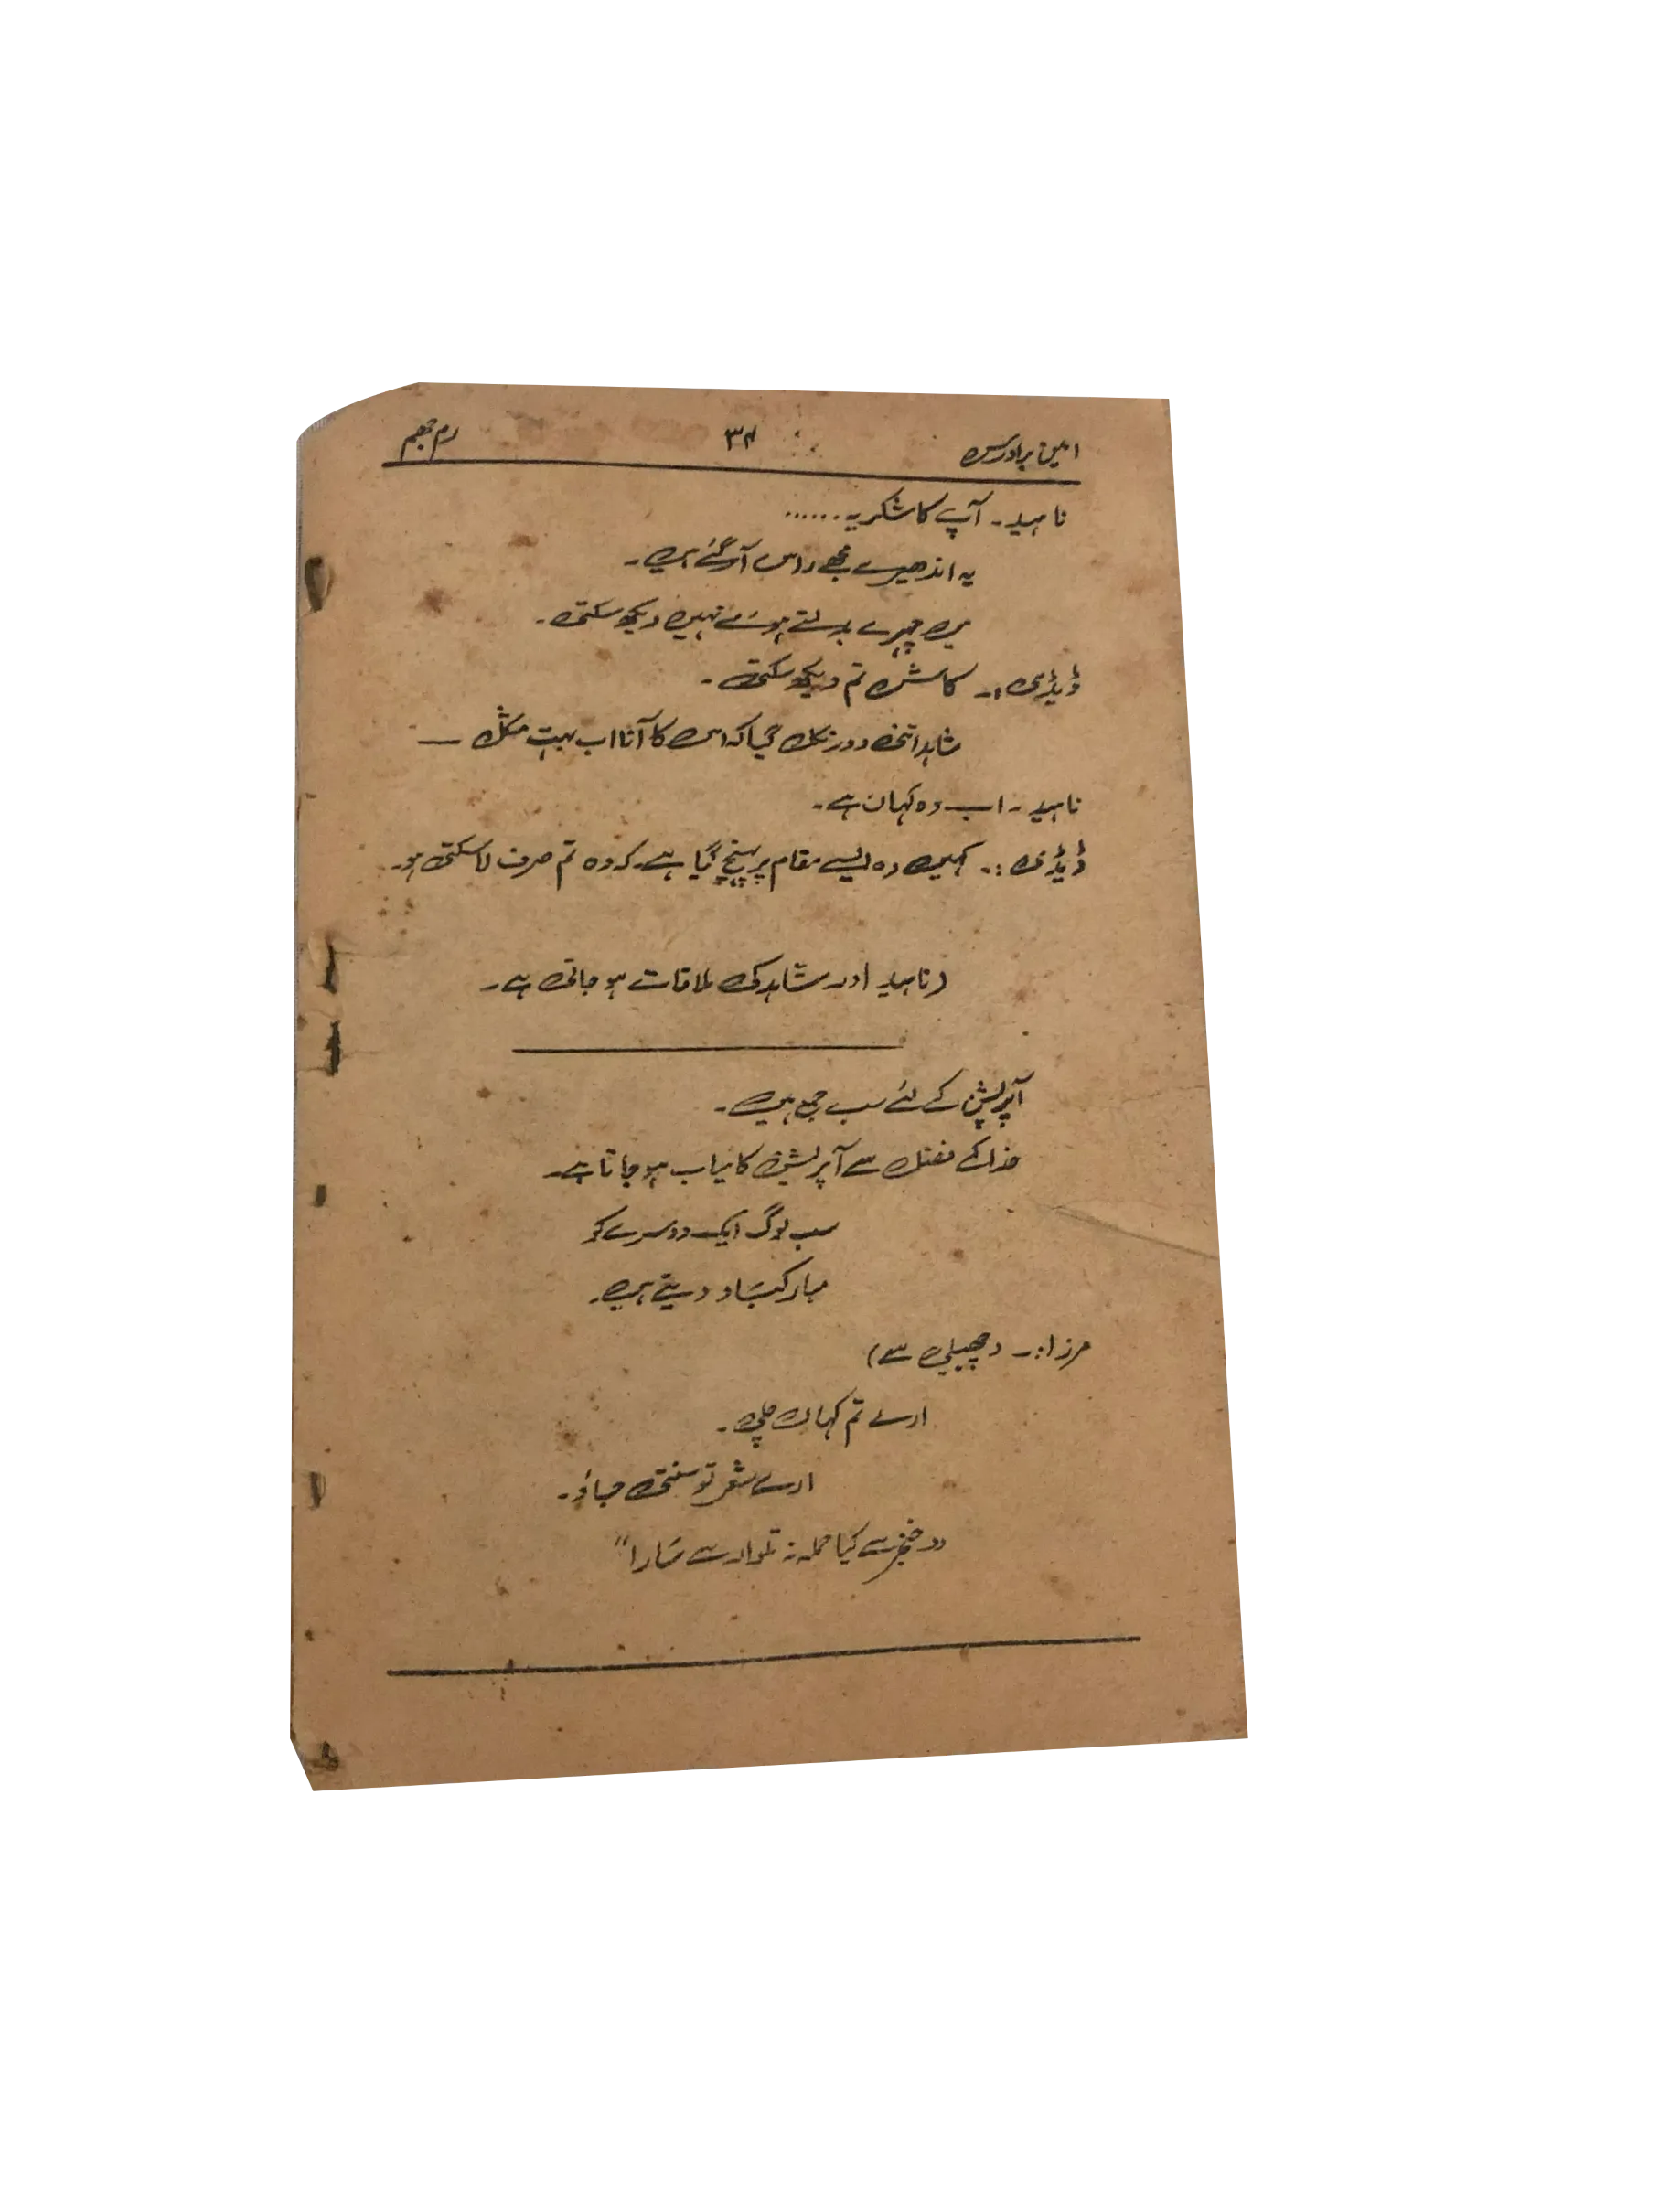 امین برادرس ۳۴ رم جھم
ناہید۔ آپ کا شکریہ ......
یہ اندھیرے مجھے راس آ گئے ہیں۔
میں چہرے بدلتے ہوئے نہیں دیکھ سکتی۔
ڈیڈی :۔ کاش تم دیکھ سکتی۔
شاہد اتنی دور نکل گیا کہ اس کا آنا اب بہت مشکل —
ناہید ۔ اب وہ کہاں ہے۔
ڈیڈی :۔ کہیں وہ ایسے مقام پر پہنچ گیا ہے۔ کہ وہ تم صرف لا سکتی ہو۔
(ناہید اور شاہد کی ملاقات ہو جاتی ہے۔
آپریشن کے لئے سب جمع ہیں۔
خدا کے فضل سے آپریشن کامیاب ہو جاتا ہے۔
سب لوگ ایک دوسرے کو
مبارکباد دیتے ہیں۔
مرزا :۔ (چمبیلی سے)
ارے تم کہاں چلی۔
ارے شعر تو سنتی جاؤ۔
"خنجر سے کیا حملہ نہ تلوار سے مارا"